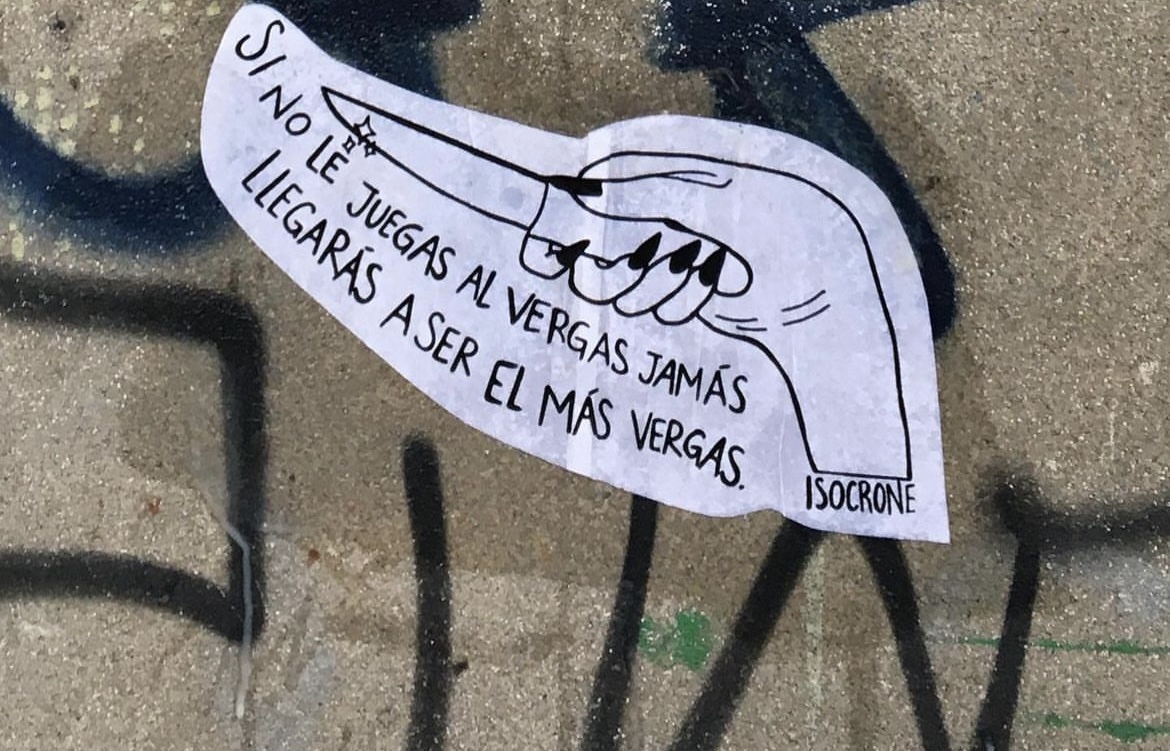 SI NO LE JUEGAS AL VERGAS JAMÁS
LLEGARÁS A SER EL MÁS VERGAS.
ISOCRONE